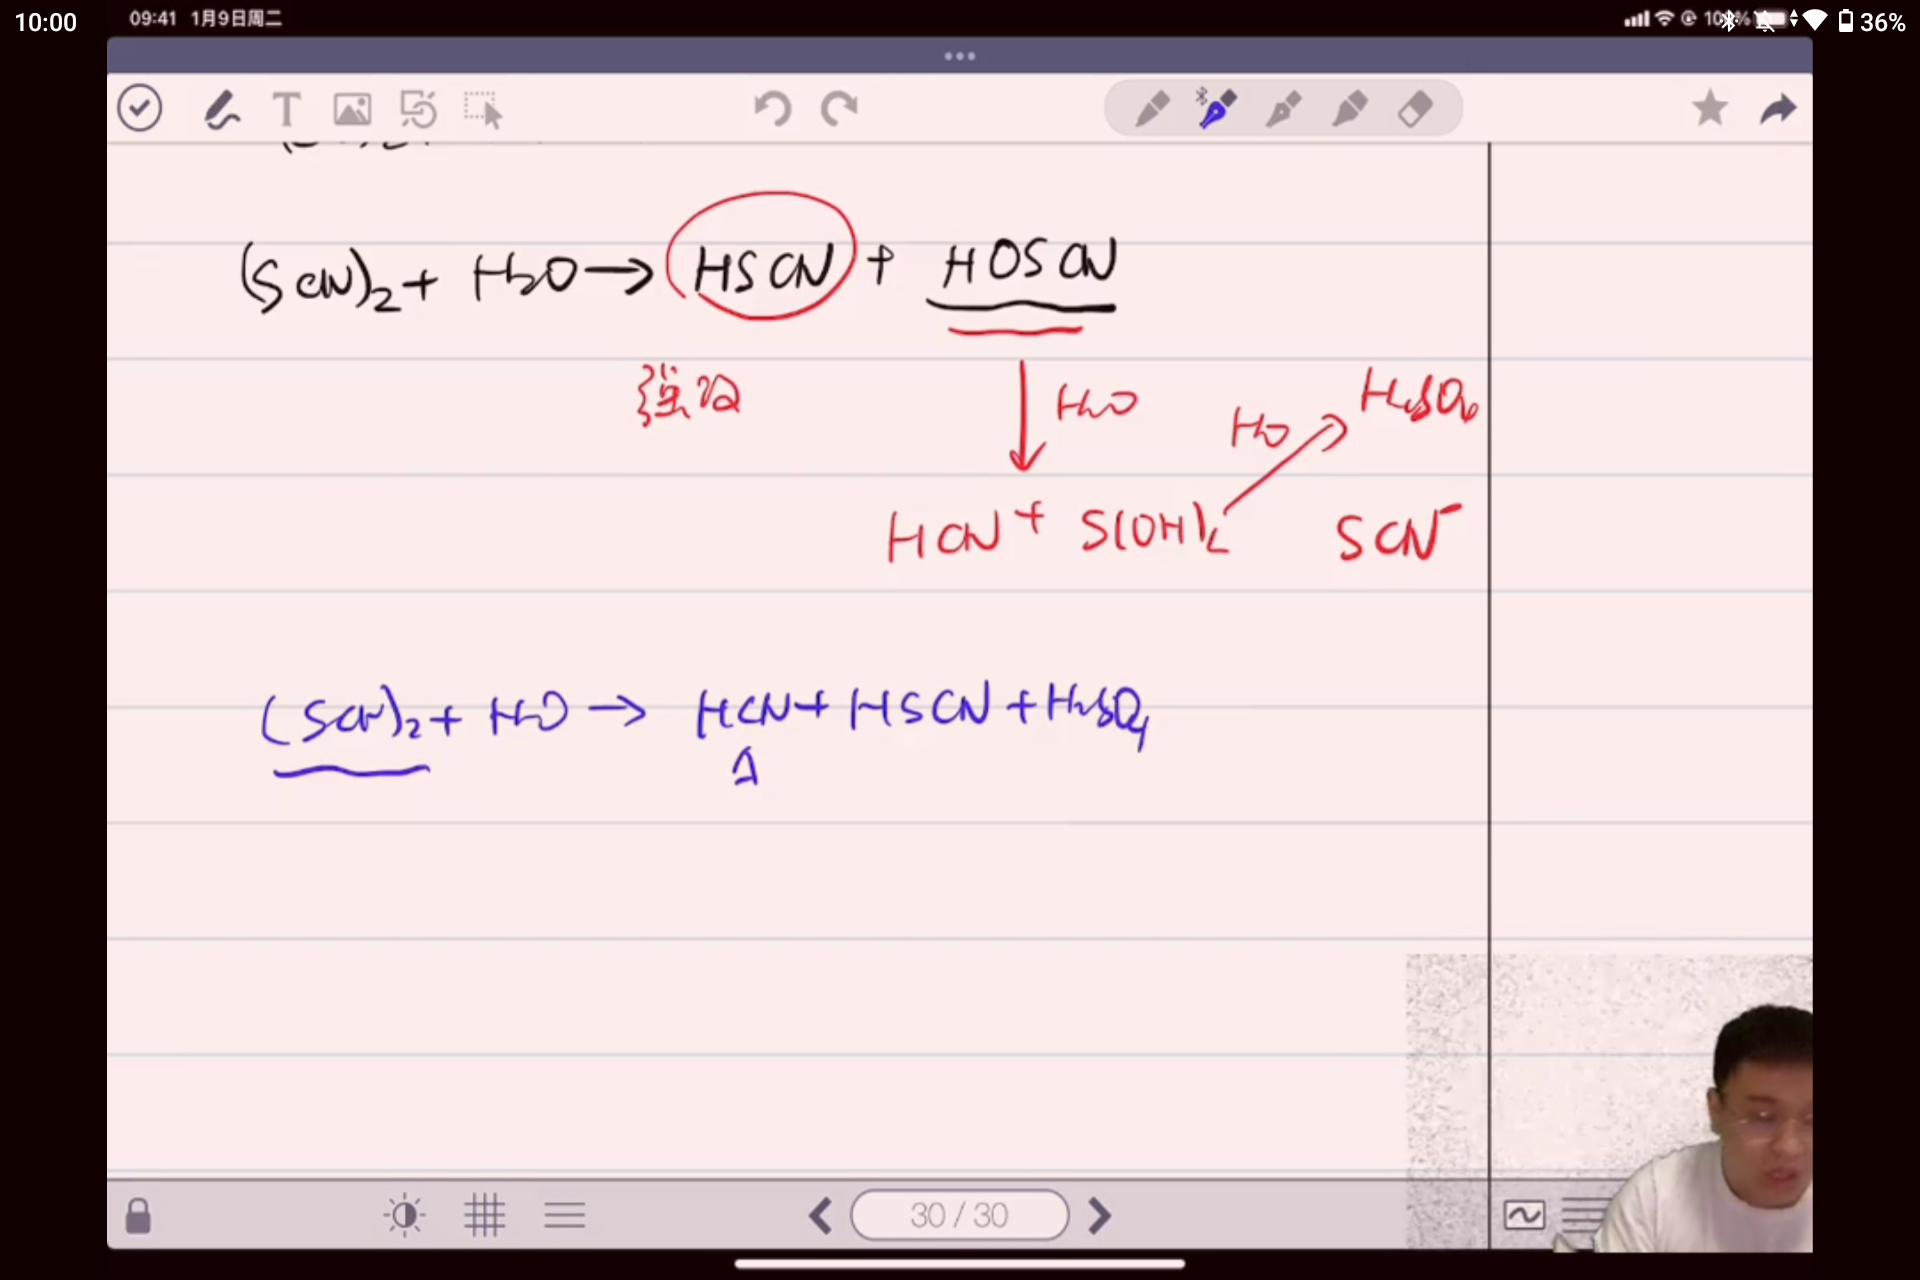 10:00 09:41 1月9日周二 36%
(SCN)₂ + H₂O → HSCN + HOSCN
强酸 H₂O H₂O H₂SO₄
HCN + S(OH)₂ SCN⁻
(SCN)₂ + H₂O → HCN + HSCN + H₂SO₄
1
30 / 30